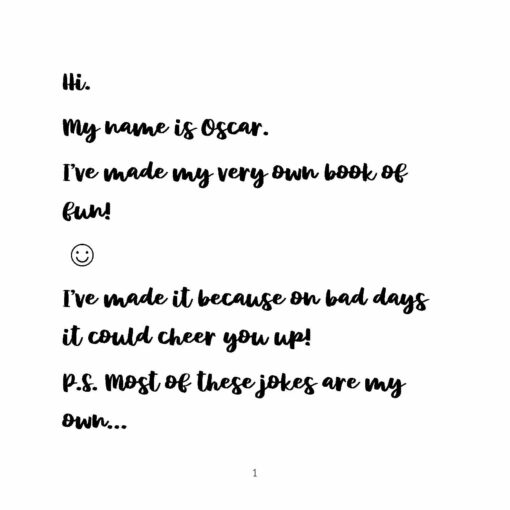 Hi.
My name is Oscar.
I've made my very own book of
fun!
☺
I've made it because on bad days
it could cheer you up!
P.S. Most of these jokes are my
own...
1